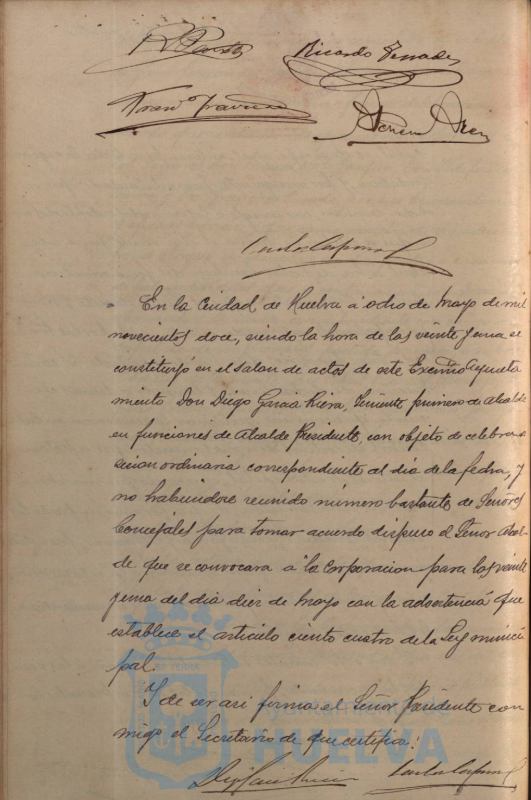 Ricardo Terrades
En la Ciudad de Huelva á ocho de Mayo de mil
novecientos doce, siendo la hora de las veinte y una se
constituyó en el salon de actos de este Excmo Ayunta
miento Don Diego Garcia Riera, Teniente primero de Alcalde
en funciones de Alcalde Presidente, con objeto de celebrar
sesion ordinaria correspondiente al dia de la fecha, y
no habiendose reunido número bastante de Señores
Concejales para tomar acuerdo dispuso el Señor Alcal-
de que se convocara á la Corporacion para las veinte
y una del dia diez de Mayo con la advertencia que
establece el articulo ciento cuatro de la Ley munici
pal.
Y de ser asi firma el Señor Presidente con
migo el Secretario de que certifico:
Ayuntamiento de
HUELVA